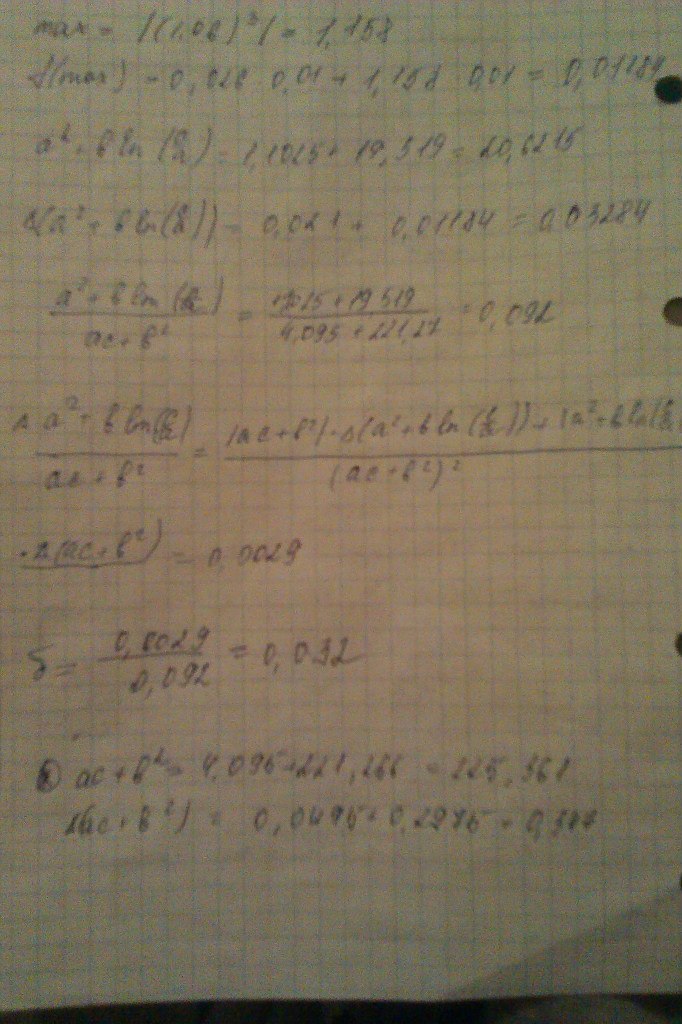 max = |(1,05)^3| = 1,158
Δ(max) = 0,026 · 0,01 + 1,158 · 0,01 = 0,01184
a² + b ln(c/a) = 1,1025 + 19,519 = 20,6215
Δ(a² + b ln(c/a)) = 0,021 + 0,01184 = 0,03284
(a² + b ln(c/a))/(ac + b²) = (1,1025 + 19,519)/(4,095 + 221,27) = 0,092
Δ (a² + b ln(c/a))/(ac + b²) = (|ac + b²| · Δ(a² + b ln(c/a)) + |a² + b ln(c/a)|)/(ac + b²)²
· Δ(ac + b²) = 0,0029
δ = 0,0029/0,092 = 0,032
ac + b² = 4,095 + 221,266 = 225,361
Δ(ac + b²) = 0,0495 + 0,2975 = 0,347